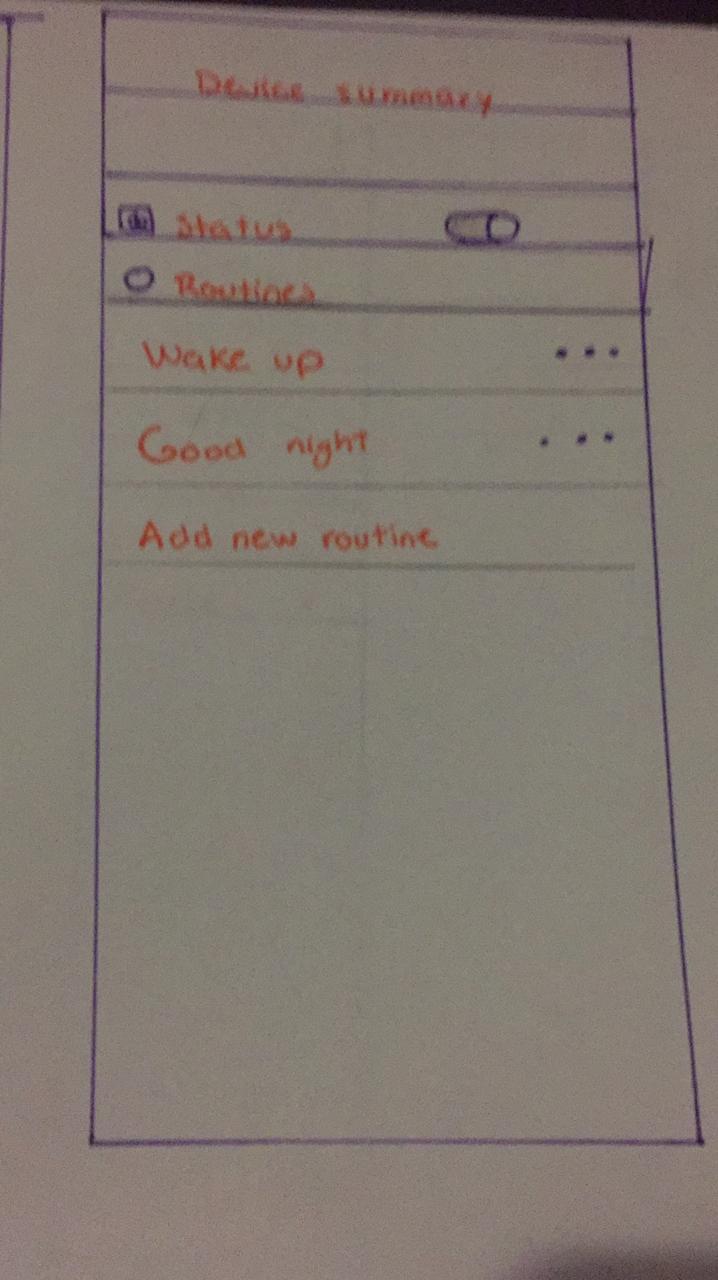 Device summary
Status
Routines
Wake up
Good night
Add new routine